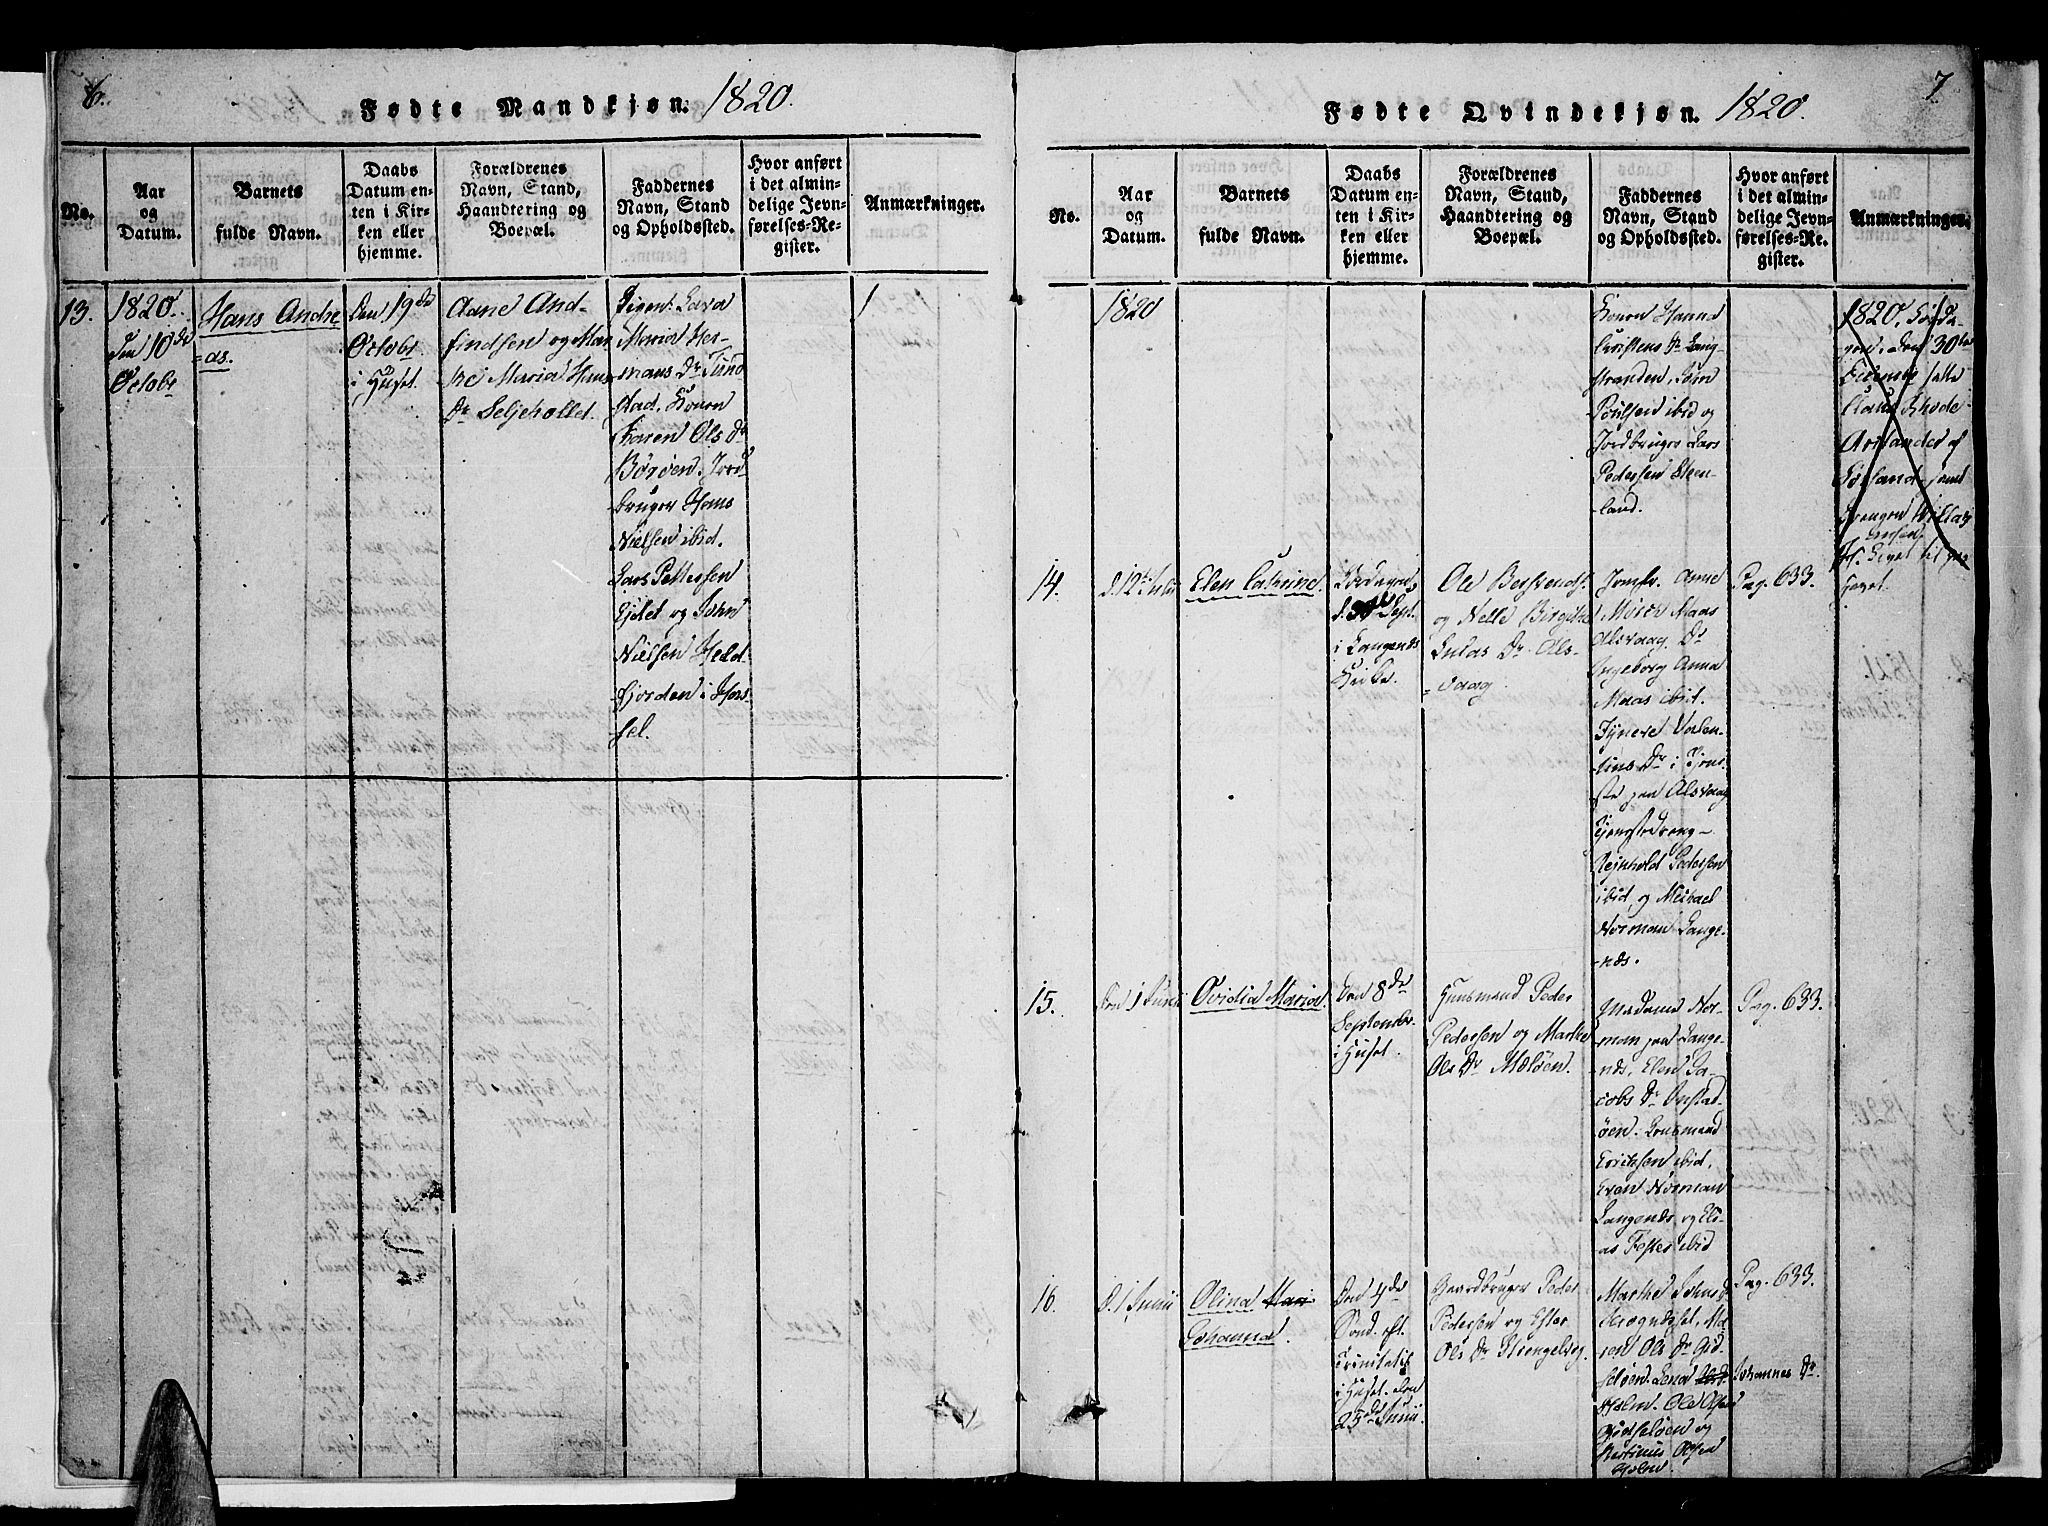 6.
Fødte Mandkjøn. 1820.
No.
Aar
og
Datum.
Barnets
fulde Navn.
Daabs
Datum en-
ten i Kir-
ken eller
hjemme.
Forældrenes
Navn, Stand,
Haandtering og
Boepæl.
Faddernes
Navn, Stand
og Opholdssted.
Hvor anført
i det almin-
delige Jevn-
førelses-Re-
gister.
Anmærkninger.
13.
1820.
den 10de
Octobr
Hans Andre
=as.
Den 19de
Octobr.
i Huset.
Aane And-
findsen og Mar-
the Maria Hans
Dr Seljeholld.
Pigen: Lava
Maria Her-
mans Dr Tund
stad. Konen
Karen Ols Dr
Bögöen. Jord-
bruger Hans
Nielsen ibid.
Lars Pettersen
Ejdet og John
Nielsen Held-
fjorden i Has-
sel.
7
Fødte Qvindekjøn. 1820.
No.
Aar
og
Datum.
Barnets
fulde Navn.
Daabs
Datum en-
ten i Kir-
ken eller
hjemme.
Forældrenes
Navn, Stand,
Haandtering og
Boepæl.
Faddernes
Navn, Stand
og Opholdssted.
Hvor anført
i det almin-
delige Jevn-
førelses-Re-
gister.
Anmærkninger.
1820
Konen Hanna
Christens Dr Lang-
stranden, John
Poulsen ibid og
Jordbruger Lars
Pedersen Steen-
land.
1820,
den 30te
samt
14.
d. 12te Julii
Elen Cathrine
d. 30te Sept.
i Langenes
Kirke.
Ole Berhrends.
og Nelle Birgithe
Lucas Dr Als-
=vaag.
Jomfr. Anne
Maas
Alsvaag. Dr
Ingeborg Anna
Maas ibid.
Valen-
tins Dr i Tjene-
ste paa Alsvaag
Tjenestedreng
Rejnhold Pedersen
ibid, og Michael
Norman Lange-
-nes.
Pag. 633.
15.
den 1 Junii
Ovidia Maria.
Den 8de
Septembr.
i Huset.
Huusmand Peder
Pedersen og Marthe
Ols Dr Maløen.
Madame Nor-
man paa Lange-
nes, Elen Ja-
cobs Dr
øen.
Eriksen ibid,
Even Norman
Langenes, og Eli-
as Festes ibid
Pag. 633.
16.
d. 1 Junii
Olina Mari
Johanna.
Den 4de
Sond. eft.
Trinitatis
i Huset. den
25de Junii.
Gaardbruger Peder
Pedersen og Ester
Ols Dr Strengelvog.
Marthe Johns Dr
Ma-
ren Ols Dr Gid-
seløen. Lena
Holm. Ole Olsen
Gidseløen og
Olsen
Holm.
Pag. 633.
Johannes Dr.